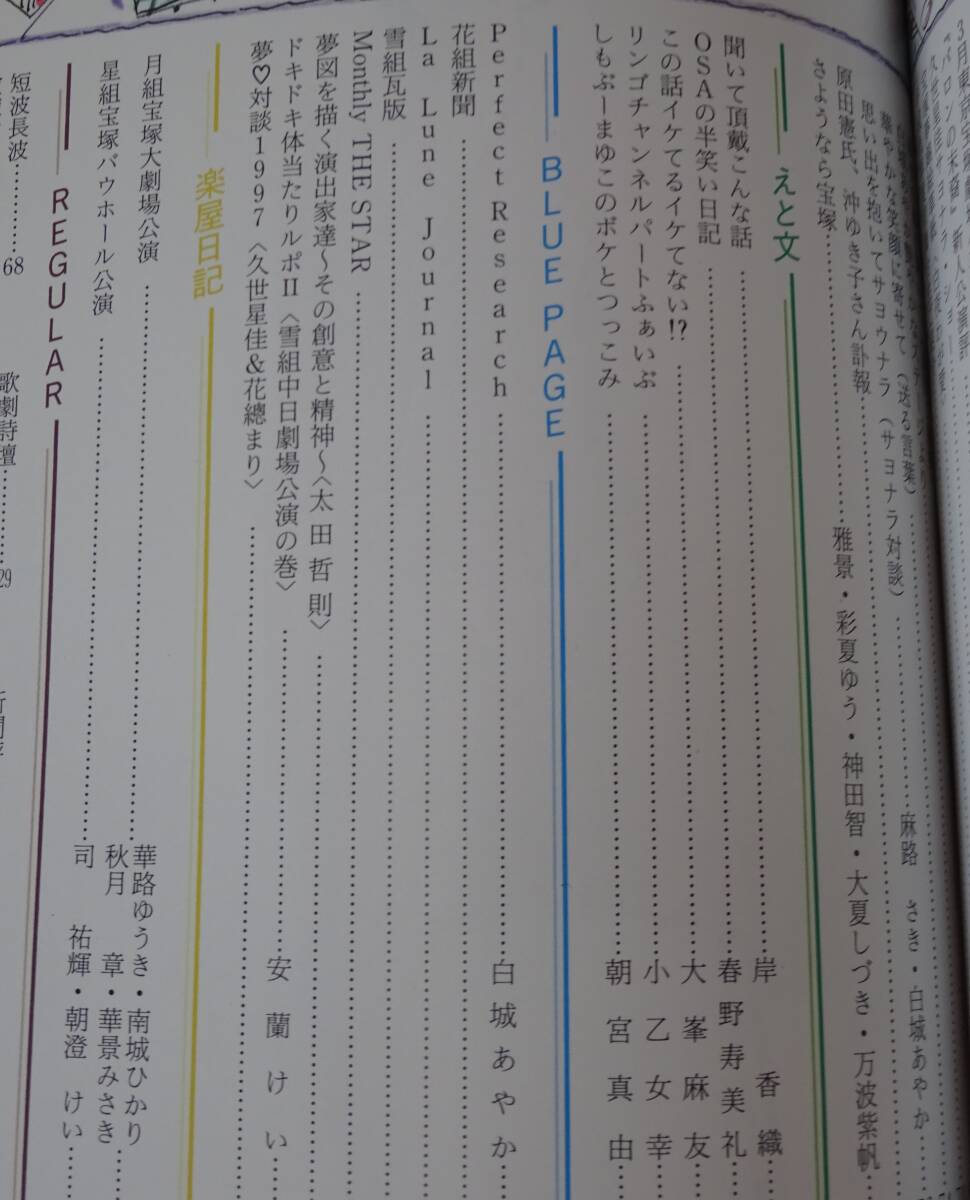 思い出を抱いてサヨウナラ（サヨナラ対談）
華やかな笑顔に寄せて（送る言葉）
麻路 さき・白城あやか
原田憲氏、沖ゆき子さん訃報
さようなら宝塚
雅景・彩夏ゆう・神田智・大夏しづき・万波紫帆
えと文
聞いて頂戴こんな話 岸香織
OSAの半笑い日記 春野寿美礼
この話イケてるイケてない!? 大峯麻友
リンゴチャンネルパートふぁいぶ 小乙女幸
しもぶーまゆこのボケとつっこみ 朝宮真由
BLUE PAGE
Perfect Research 白城あやか
花組新聞
La Lune Journal
雪組瓦版
Monthly THE STAR
夢図を描く演出家達～その創意と精神～〈太田哲則〉
ドキドキ体当たりルポII〈雪組中日劇場公演の巻〉 安蘭けい
夢♡対談1997〈久世星佳&花總まり〉
楽屋日記
月組宝塚大劇場公演 華路ゆうき・南城ひかり
秋月 章・華景みさき
星組宝塚バウホール公演 司 祐輝・朝澄 けい
REGULAR
短波長波 68
歌劇詩壇 29